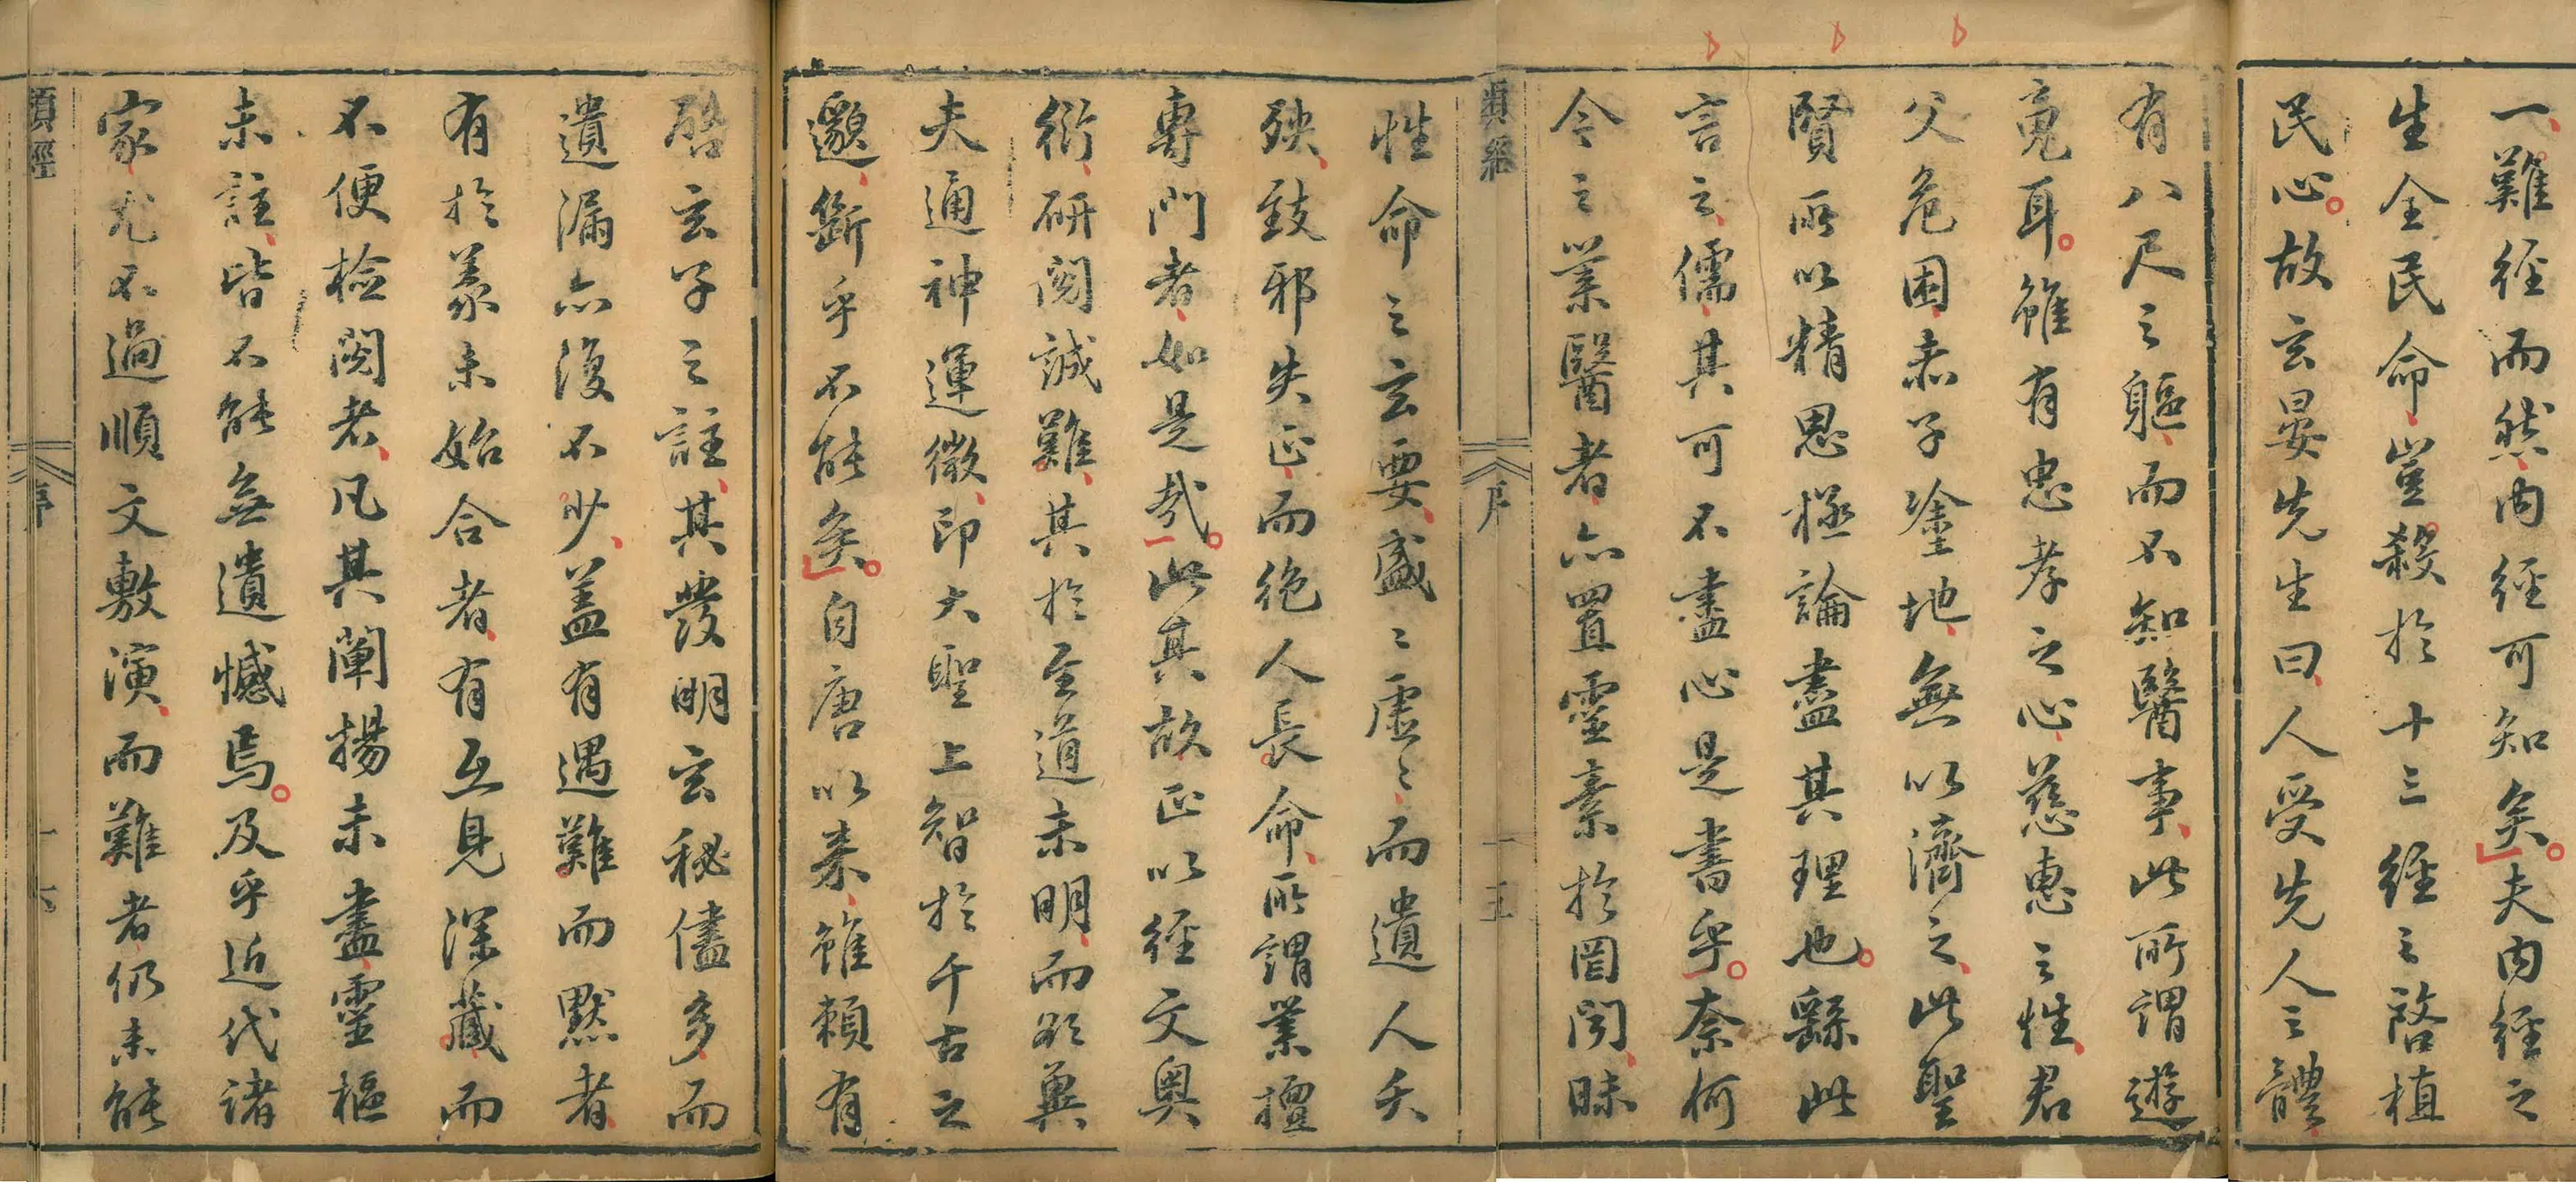 一難經而然內經可知矣夫內經之
生全民命豈殺於十三經之啓植
民心故玄晏先生曰人受先人之體
有八尺之軀而不知醫事此所謂遊
䰟耳雖有忠孝之心慈惠之性君
父危困赤子塗地無以濟之此聖
賢所以精思極論盡其理也繇此
言之儒其可不盡心是書乎奈何
今之業醫者亦置靈素於罔聞昧
類經
序
十五
性命之玄要盛〻虛〻而遺人夭
殃致邪失正而絶人長命所謂業擅
專門者如是哉此其故正以經文奧
衍研閱誠難其於至道未明而欲兾
夫通神運微印大聖上智於千古之
邈斷乎不能矣自唐以來雖賴有
啓玄子之註其發明玄秘儘多而
遺漏亦復不少蓋有遇難而默者
有於義未始合者有互見深藏而
不便檢閱者凡其闡揚未盡靈樞
未註皆不能無遺憾焉及乎近代諸
家尤不過順文敷演而難者仍未能
類經
序
十六